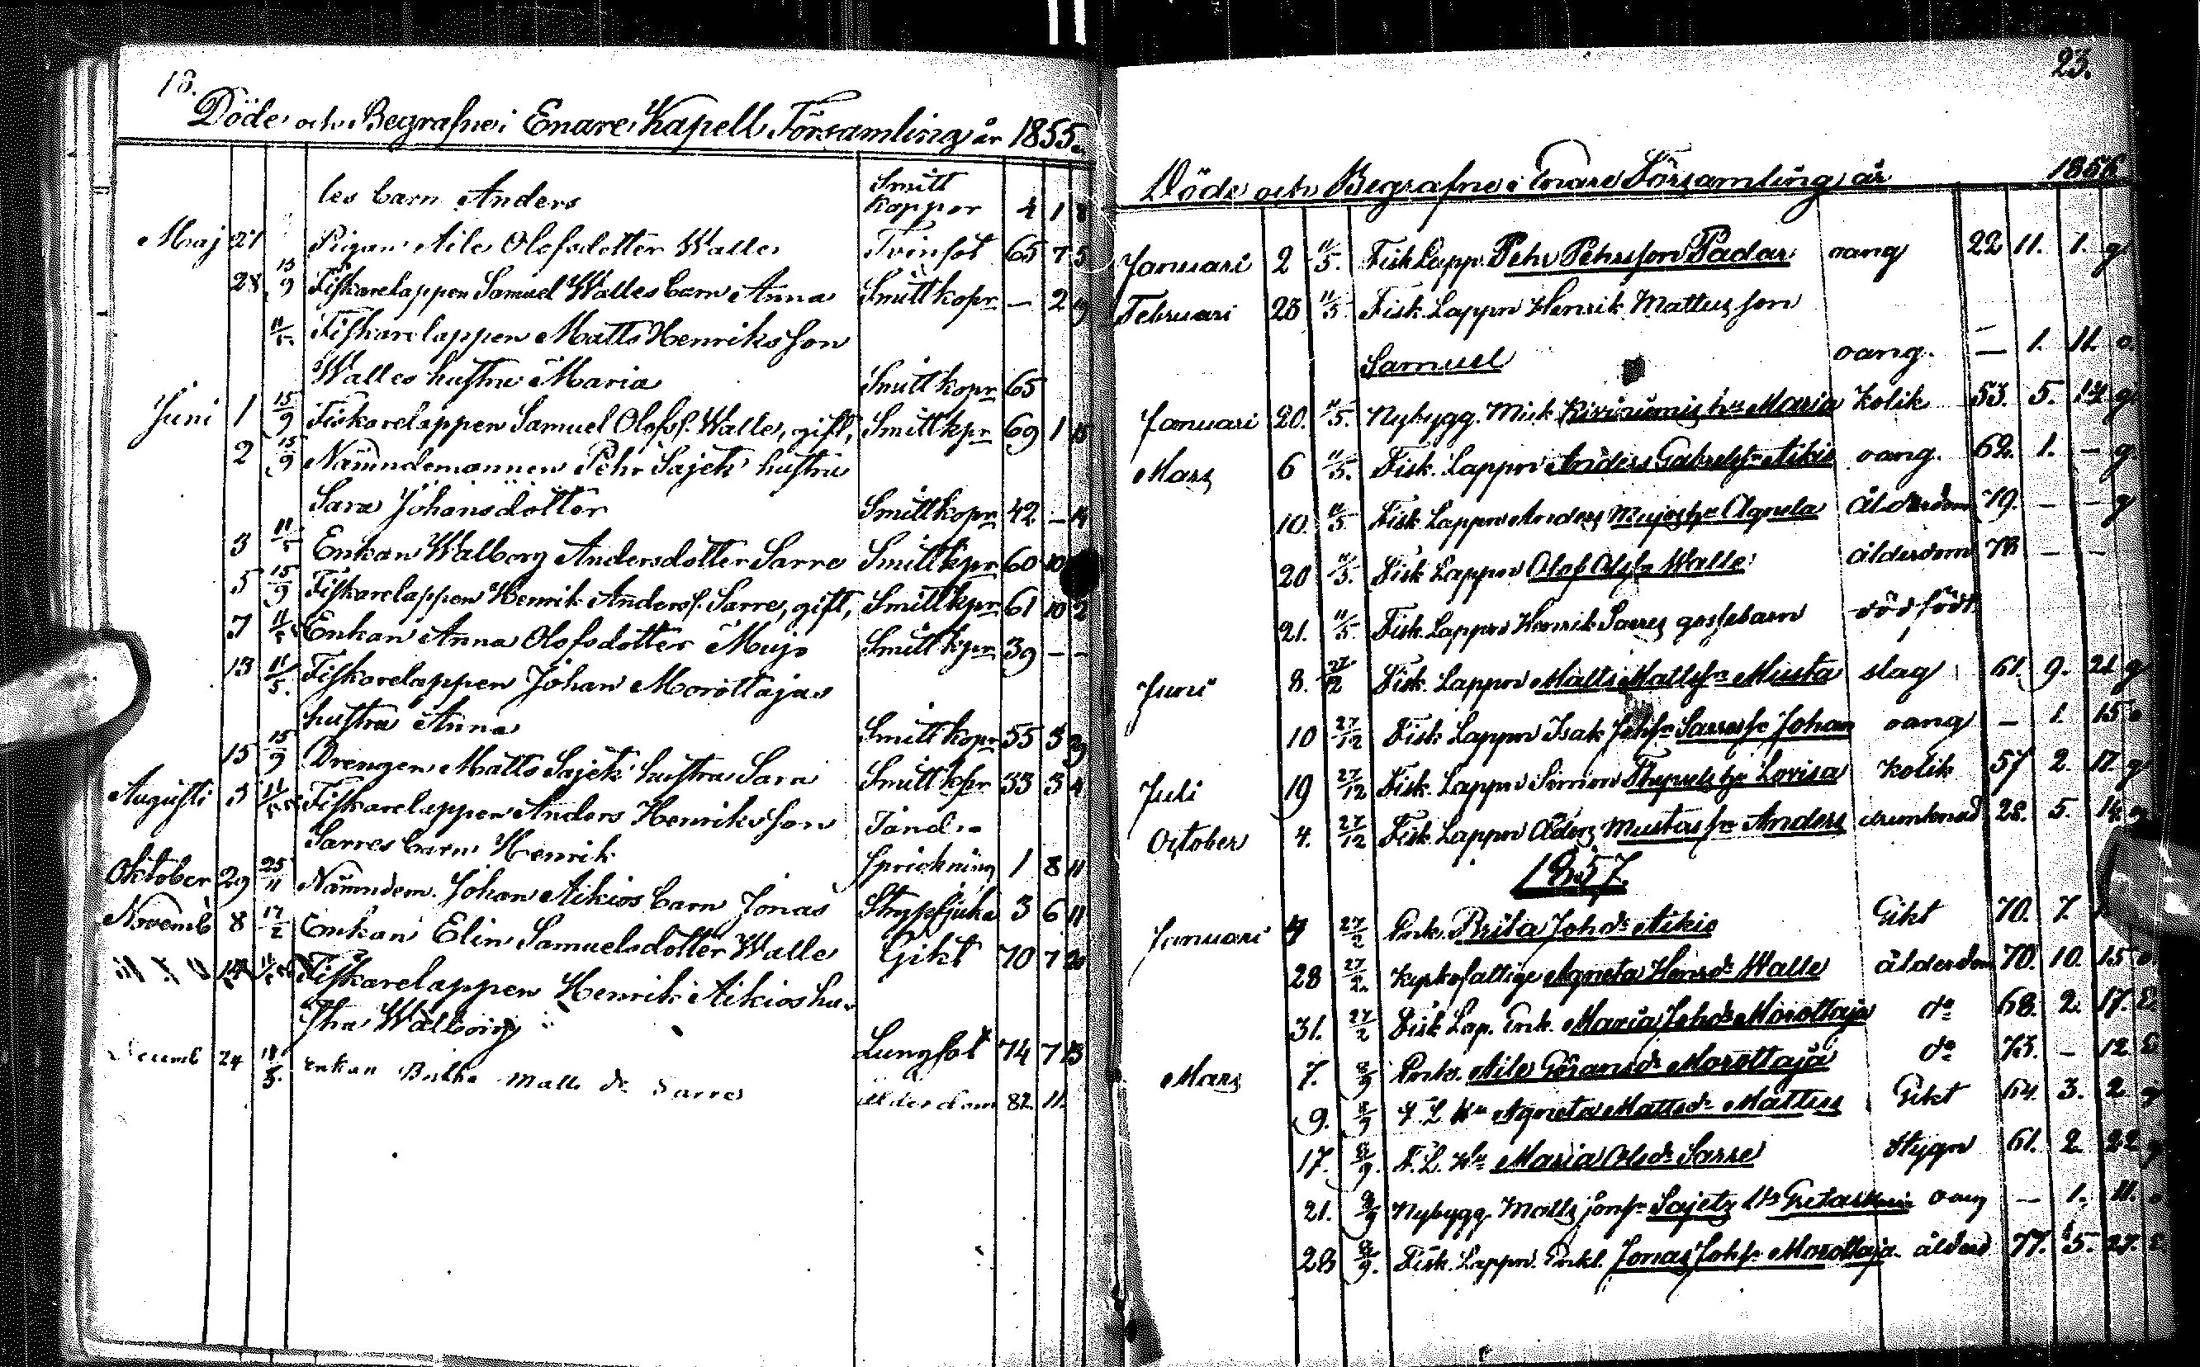 18.
Döde och Begrafne i Enare Kapell Församling år 1855.
les barn Anders Smitt koppor 4 1 8
Maj 27 Pigan Aile Olofsdotter Walle Tvinsot 65 7 5
28 15/9 Fiskarelappen Samuel Walles barn Anna Smittkopr — 2 9
11/5 Fiskarelappen Matts Henriksson
Walles hustru Maria Smittkopr 65
Juni 1 15/9 Fiskarelappen Samuel Olofs. Walle, gift, Smittkpr 69 1 15
2 15/9 Nämndemannen Pehr Sajets hustru
Sara Johansdotter Smittkopr 42 — 14
3 11/5 Enkan Walborg Andersdotter Sarre Smittkpr 60 10
5 15/9 Fiskarelappen Henrik Anders. Sarre, gift, Smittkpr 61 10 2
7 11/5 Enkan Anna Olofsdotter Mujo Smittkpr 39 — —
13 11/5. Fiskarelappen Johan Morottajas
hustru Anna Smittkopr 55 3 29
15 15/9 Drengen Matts Sajets hustru Sara Smittkpr 33 3 4
Augusti 5 Fiskarelappen Anders Henriksson
Sarres barn Henrik Tand-
sprickning 1 8 11
Oktober 29 25/11 Nämndem. Johan Aikios barn Jonas Strypsjuka 3 6 11
Novemb 8 17/2 Enkan Elin Samuelsdotter Walle Gikt 70 7 20
14 Fiskarelappen Henrik Aikios hu-
stru Walborg Lungsot 74 7 13
Decemb 24 18/5. Enkan Britha Matts dr Sarre ålderdom 82. 11.
23.
Döde och Begrafne i Enare Församling år 1856
Januari 2 11/5. Fisk Lapp. Pehr Pehrsson Padar oang 22 11. 1. g
Februari 28 11/5. Fisk. Lappn Henrik Mattus son
Samuel oang. — 1. 11. o
Januari 20. 11/5. Nybygg. Mich Kiviniemis hu Maria Kolik 53. 5. 14 g
Mars 6 11/5. Fisk. Lappn Anders Gabrielsn Aikio oang. 62. 1. — g
10. 11/5 Fisk Lappn Anders Mujos hu Agneta Ålderdom 79. — — g
20 11/5. Fisk Lappn Olof Olsn Walle ålderdom 78 — —
21. 11/5. Fisk. Lappn Henrik Sarres gossebarn dödfödt
Juni 8. 27/12 Fisk. Lappn Matts Mattsn Musta slag 61. 9. 21 g
10 27/12 Fisk. Lappn Isak Johsn Sarres sn Johan oang — 1. 15 o
Juli 19 27/12 Fisk. Lappn Simon Thyuels hu Lovisa Kolik 57 2. 17 g
October 4. 27/12 Fisk. Lappn Anders Mustas sn Anders drunknad 28. 5. 14.
1857.
Januari 4 27/2 Enk. Brita Johdr Aikio Gikt 70. 7.
28 27/2. Kyrkofattige Agneta Hensdr Walle ålderdom 70. 10. 15
31. 27/2 Fisk Lap. Enk. Maria Johdr Morottaja do 68. 2. 17. E
Mars 7. 8/9 Enk. Aile Göransdr Morottaja do 73. — 12 E
9. 8/9 F. L. Hu Agneta Mattsdr Mattus Gikt 64. 3. 2 g
17. 8/9. F. L. Hu Maria Olsdr Sarre Stygn 61. 2. 22 g
21. 8/9 Nybygg. Matts Jonsn Sajets oang — 1. 11.
28 8/9. Fisk. Lappn. Enkl. Jonas Johsn Morottaja ålderd 77. 5. 27. E